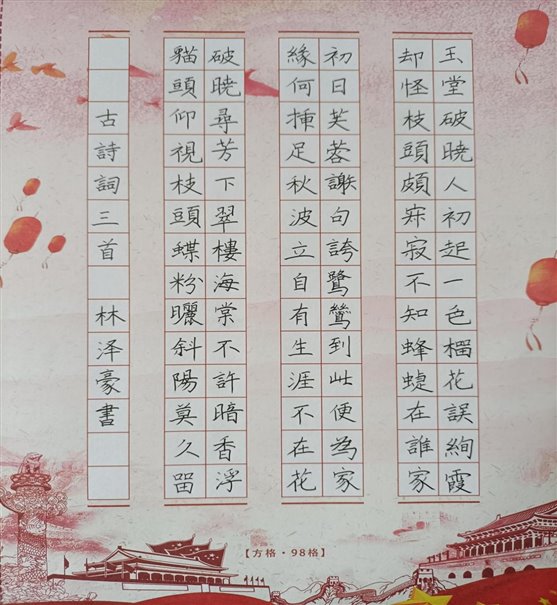 玉堂破曉人初起一色榴花誤絢霞
却怪枝頭頗寂寂不知蜂蝶在誰家
初日芙蓉謝句誇鷺鶯到此便為家
緣何插足秋波立自有生涯不在花
破曉尋芳下翠樓海棠不許暗香浮
貓頭仰視枝頭蝶粉曬斜陽莫久留
古詩詞三首 林泽豪書
【方格·98格】